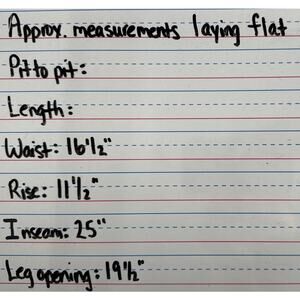 Approx. measurements laying flat
Pit to pit:
Length:
Waist: 16 1/2"
Rise: 11 1/2"
Inseam: 25"
Leg opening: 19 1/2"